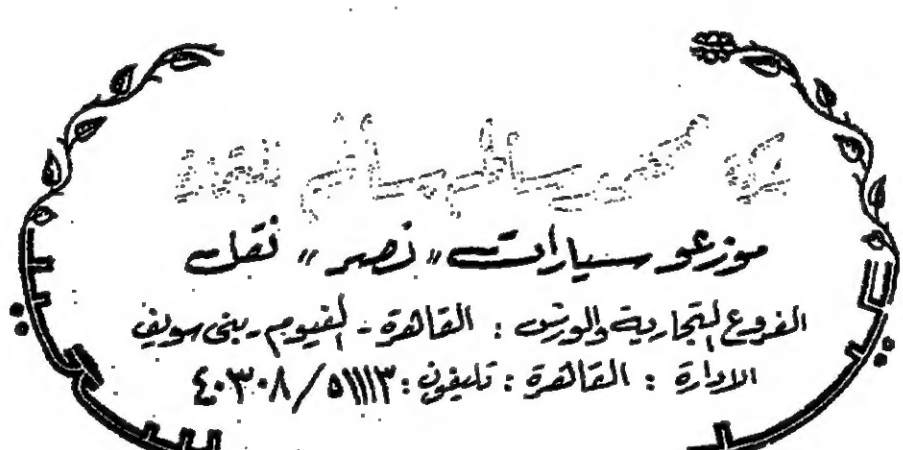 موزعو سيارات "نصر" نقل
الفروع التجارية والورش : القاهرة - الفيوم - بنى سويف
الادارة : القاهرة : تليفون : ٥١١١٣ / ٤٠٣٠٨